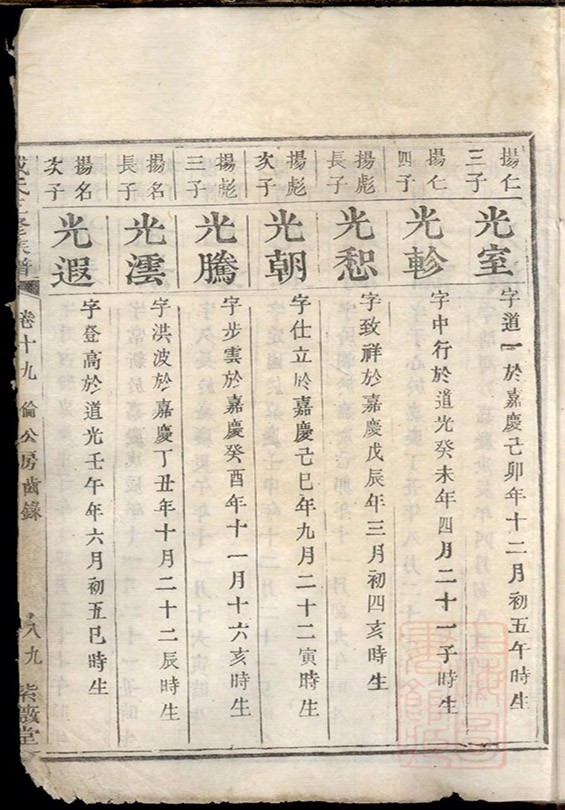 揚仁三子
光室
字道一於嘉慶己卯年十二月初五午時生
揚仁四子
光軫
字中行於道光癸未年四月二十一子時生
揚彪長子
光恕
字致祥於嘉慶戊辰年三月初四亥時生
揚彪次子
光朝
字仕立於嘉慶己巳年九月二十二寅時生
揚彪三子
光騰
字步雲於嘉慶癸酉年十一月十六亥時生
揚名長子
光澐
字洪波於嘉慶丁丑年十月二十二辰時生
揚名次子
光遐
字登高於道光壬午年六月初五巳時生
氏 修族譜
卷十九
倫公房齒錄
八九
紫薇堂